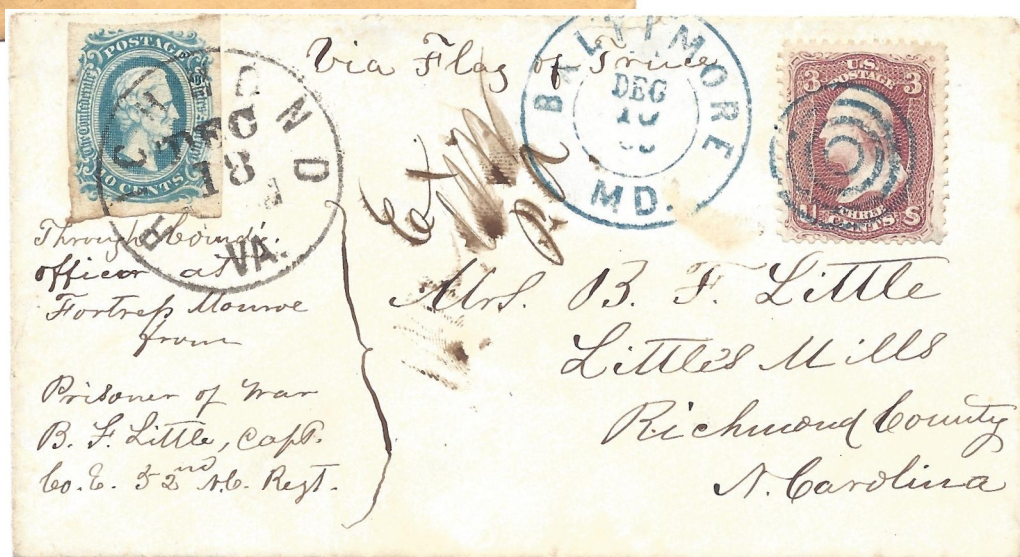 POSTAGE
The Confederate
10 CENTS
RICHMOND
DEC
18
VA.
Via Flag of Truce
BALTIMORE
DEC
MD.
3 3
U.S.
POSTAGE
THREE
CENTS
U S
Ex
Through Comd'.
officer at
Fortress Monroe
from
Prisoner of War
B. F. Little, Capt.
Co. E. 52nd N.C. Regt.
Mrs. B. F. Little
Little's Mills
Richmond County
N. Carolina